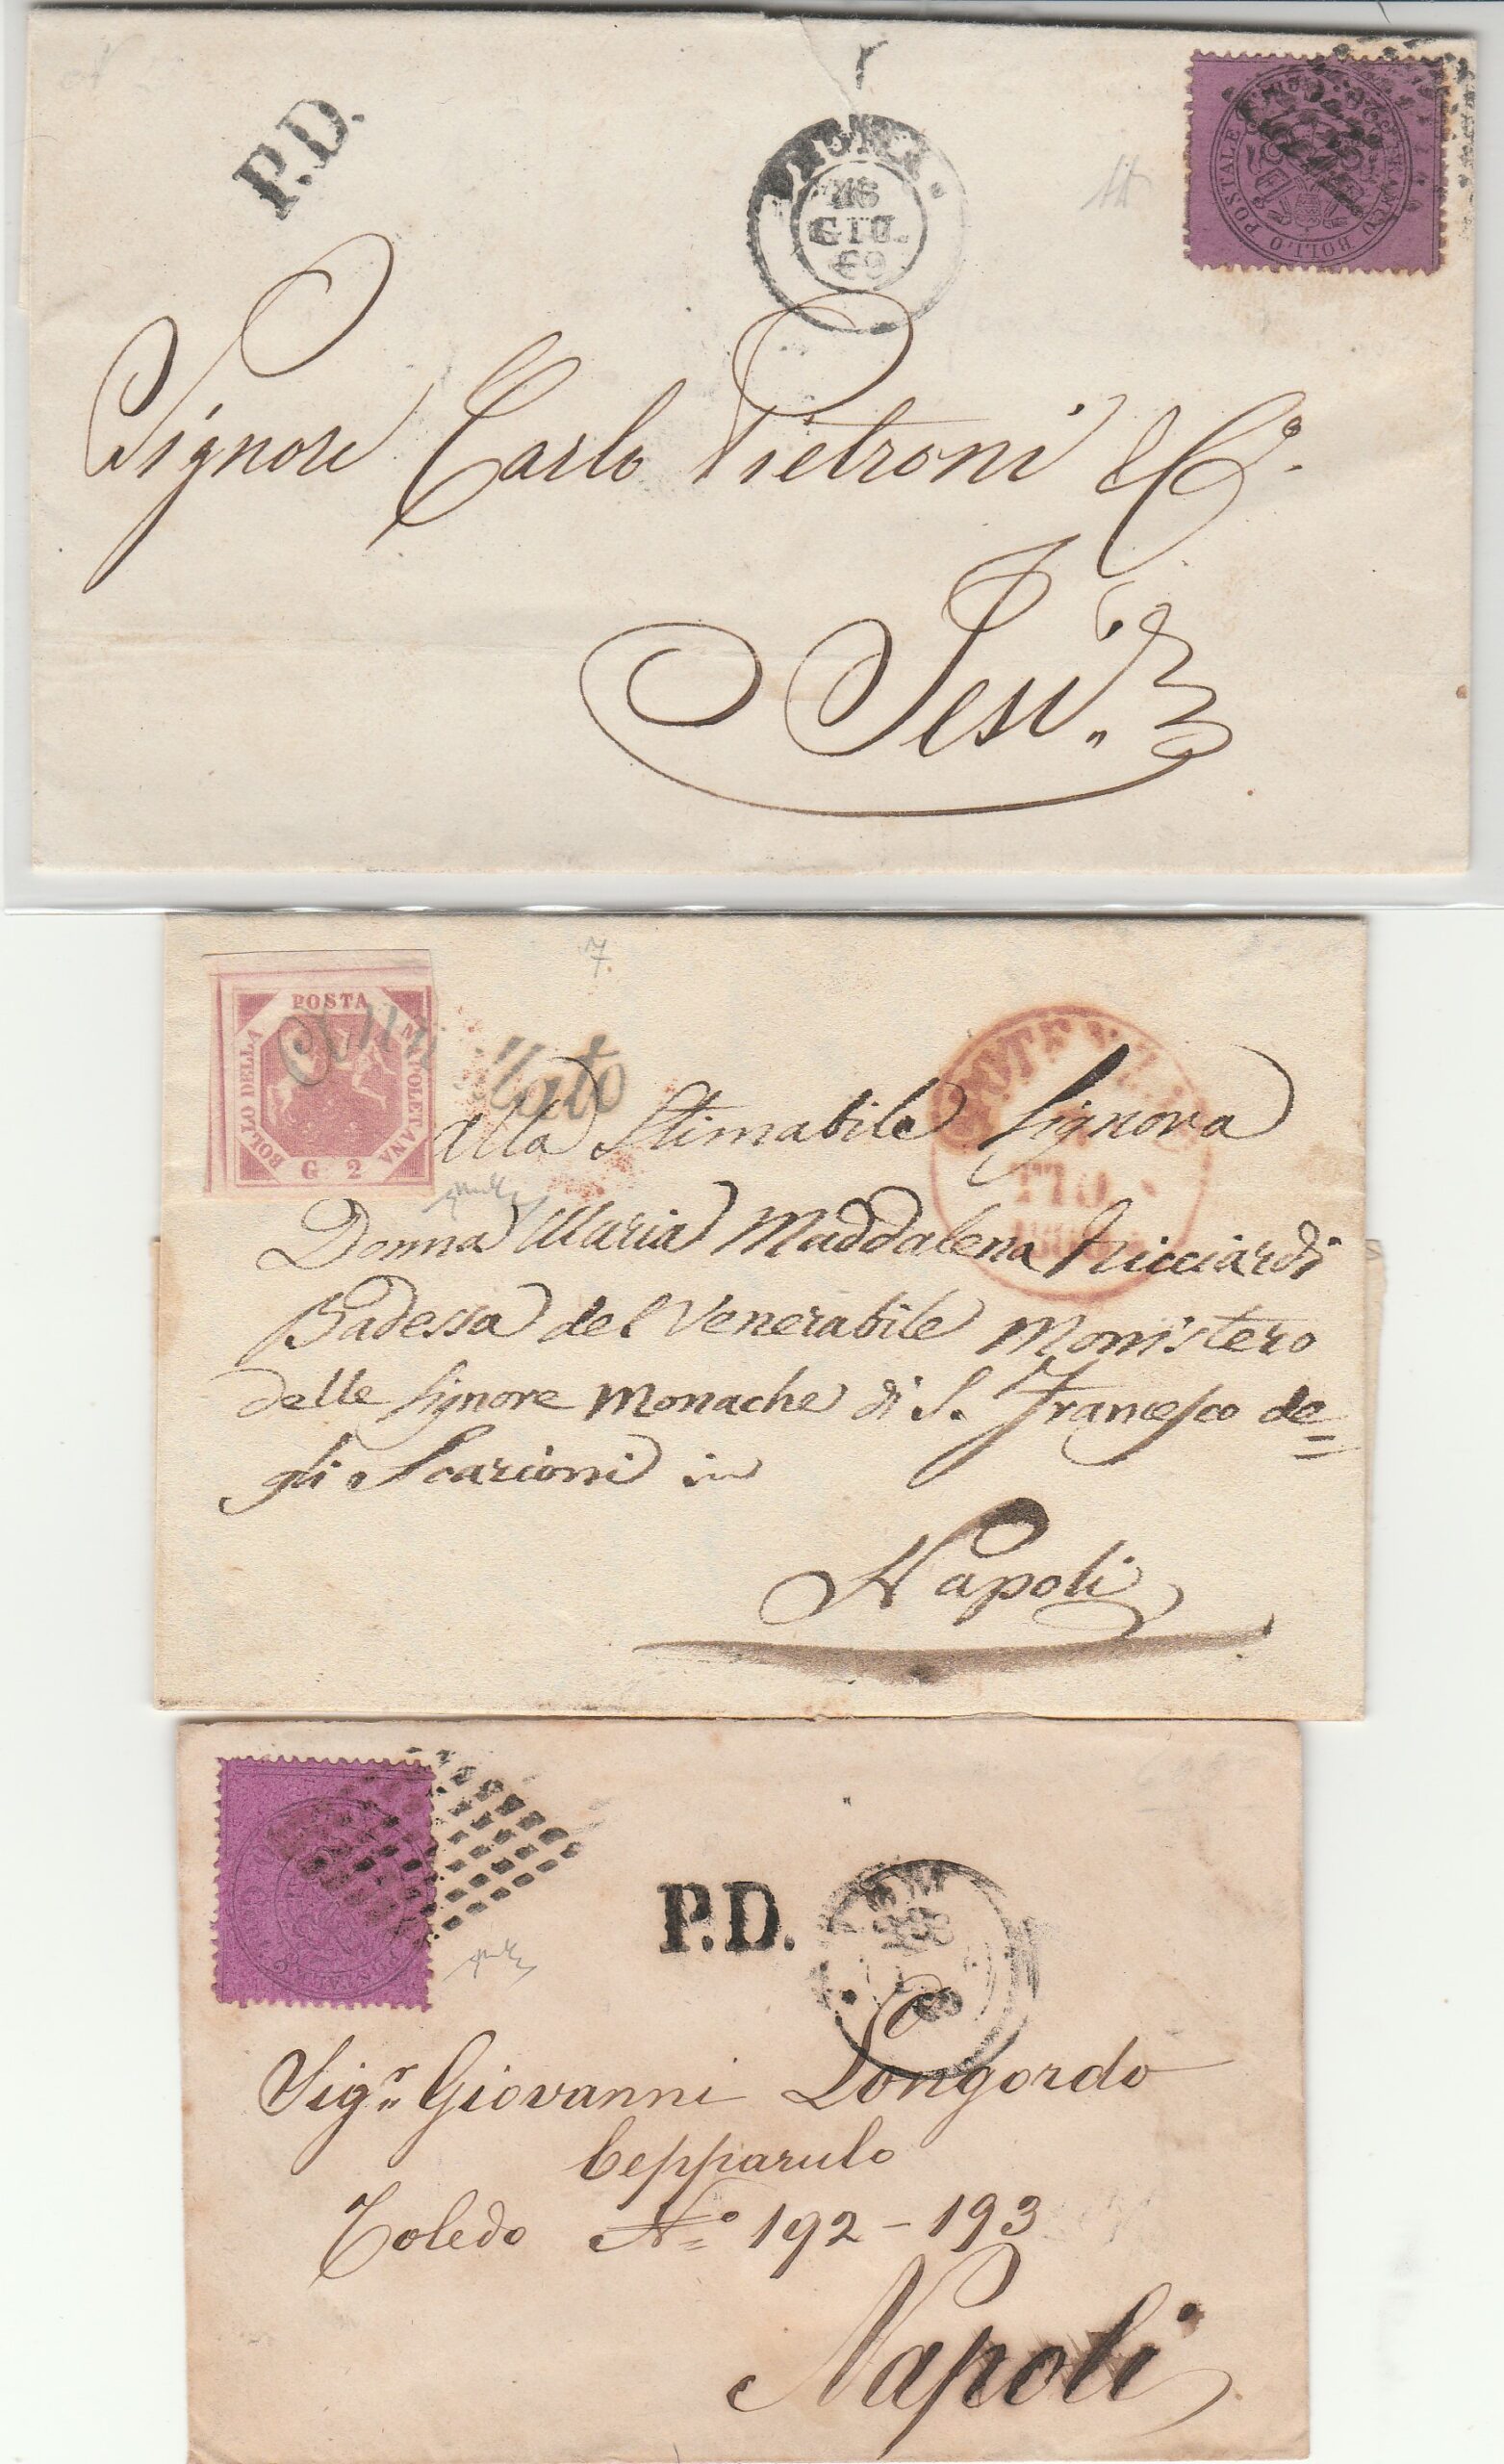 P.D.
GIU.
69
BOLLO POSTALE
Signore Carlo Pietroni & Co.
Jesi
7
POSTA
NAPOLETANA
BOLLO DELLA
G 2
Annullato
alla Stimabile Signora
Donna Maria Maddalena Ricciardi
Badessa del Venerabile Monistero
delle Signore Monache di S. Francesco de=
gli Scarioni in
Napoli
P.D.
Sigr. Giovanni Longordo
Cepparulo
Toledo No. 192-193
Napoli